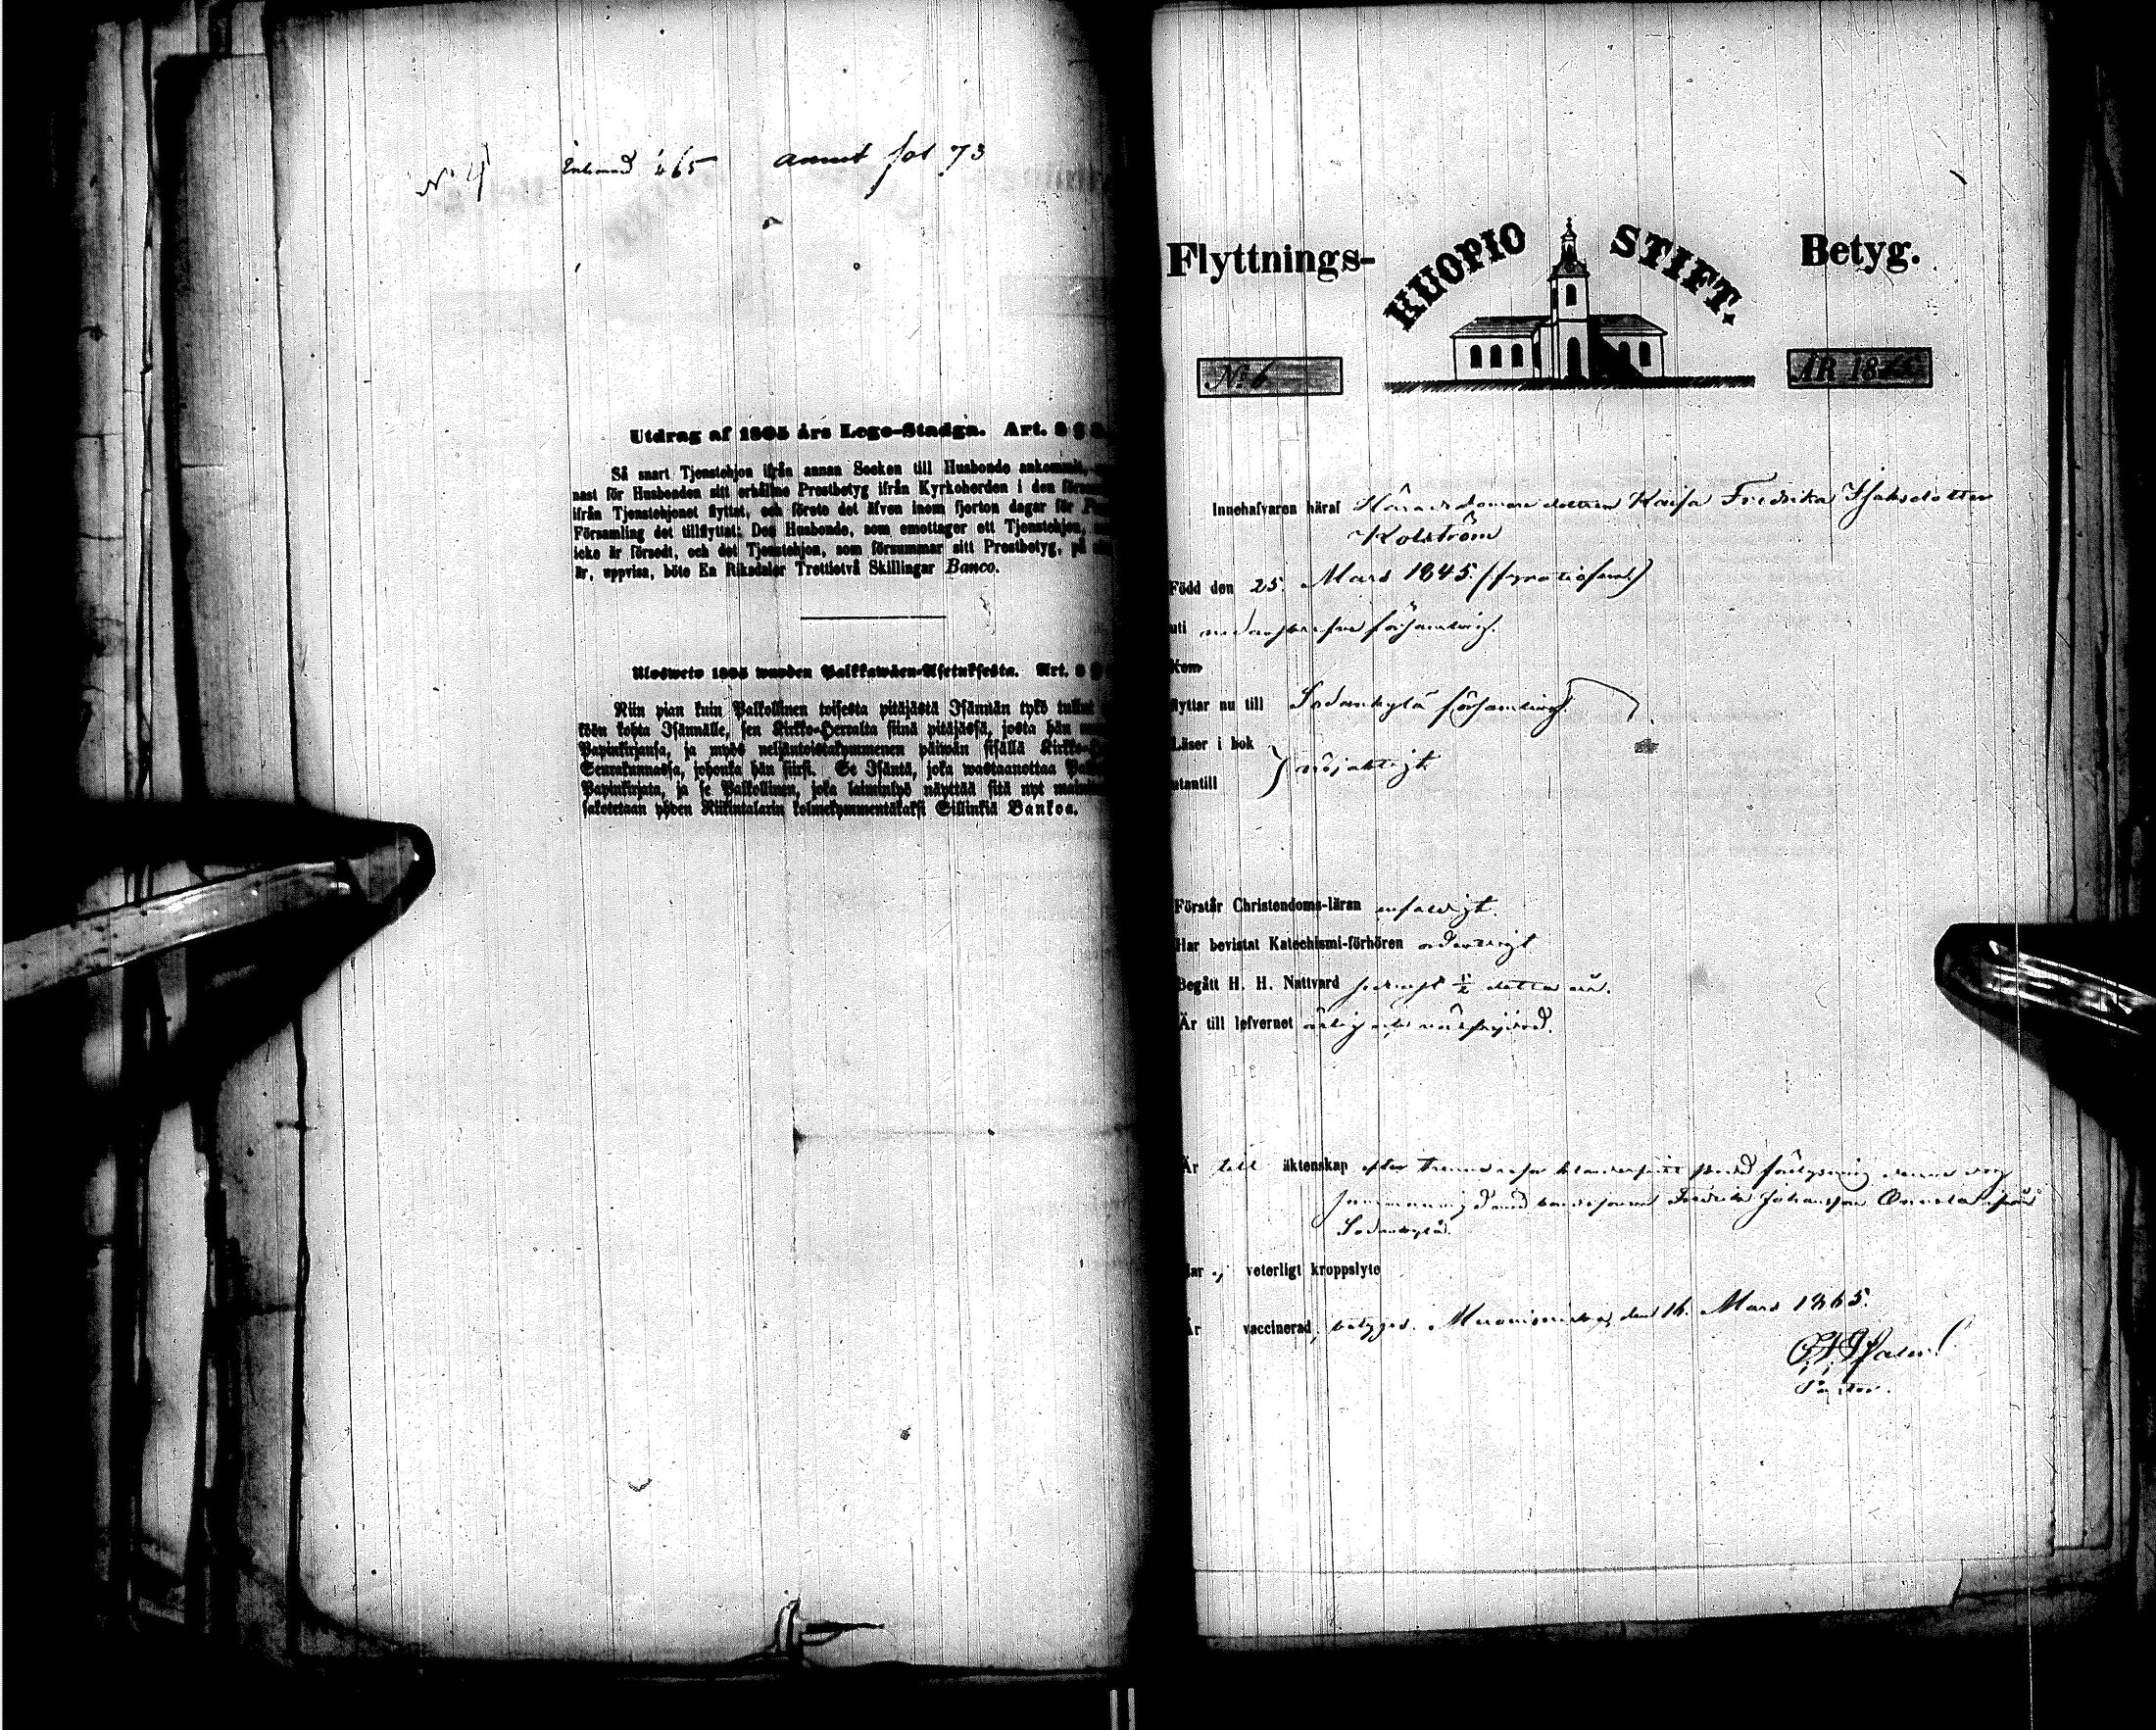 No 4 65 annot fol 73
Utdrag af 1805 års Lego-Stadga. Art. 8 §
Så snart Tjenstehjon ifrån annan Socken till Husbonde ankommit,
nast för Husbonden sitt erhållne Prestbetyg ifrån Kyrkoherden i den
ifrån Tjenstehjonet flyttat, och förete det äfven inom fjorton dagar för
Församling det tillflyttat; Den Husbonde, som emottager ett Tjenstehjon,
icke är försedt, och det Tjenstehjon, som försummar sitt Prestbetyg, på
är, uppvisa, böte En Riksdaler Trettiotvå Skillingar Banco.
Ulosweto 1805 wuoden Palkkawäen-Asetuksesta. Art. 8 §
Niin pian kuin Palkollinen toisesta pitäjästä Isännän tykö
köön kohta Isännälle, sen Kirkko-Herralta siinä pitäjässä, josta hän
Papinkirjansa, ja myös neljäntoistakymmenen päiwän sisällä
Seurakunnassa, johonka hän siirsi. Se Isäntä, joka wastaanottaa
Papinkirjata, ja se Palkollinen, joka laiminlyö näyttää sitä nyt
sakotetaan yhden Riikintalarin kolmekymmentäkaksi Sillinkiä Bankoa.
Flyttnings- KUOPIO STIFT. Betyg.
No 6 ÅR 18
Innehafvaren häraf Häradsdomaredottren Kaisa Fredrika Isaksdotter
Kolström
Född den 25 Mars 1845. (fyratiofem)
uti nedanskrefne församling.
Kom
flyttar nu till Sodankylä församling.
Läser i bok
utantill } nöjaktigt.
Förstår Christendoms-läran enfaldigt.
Har bevistat Katechismi-förhören ordentligt
Begått H. H. Nattvard detta år.
Är till lefvernet ärlig och välfrejdad.
Är till äktenskap efter
Fredrik Johansson Onnela ifrån
Sodankylä.
Har ej veterligt kroppslyte
Är vaccinerad, betygas. Muonioniska den 16. Mars 1865.
Pastor.